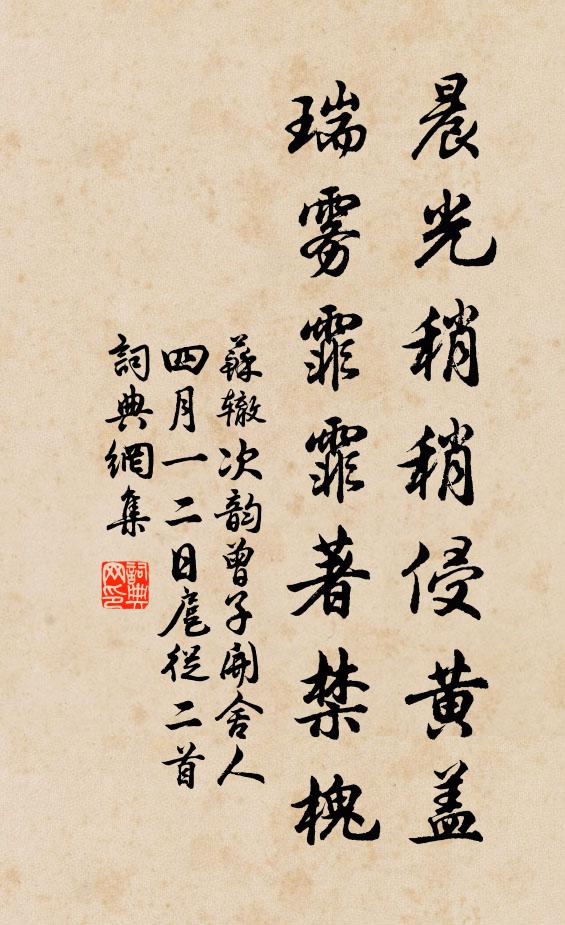 晨光稍稍侵黄盖
瑞雾霏霏著禁槐
蘇辙次韵曾子開舍人
四月一二日扈從二首
詞典網集
詞典网印